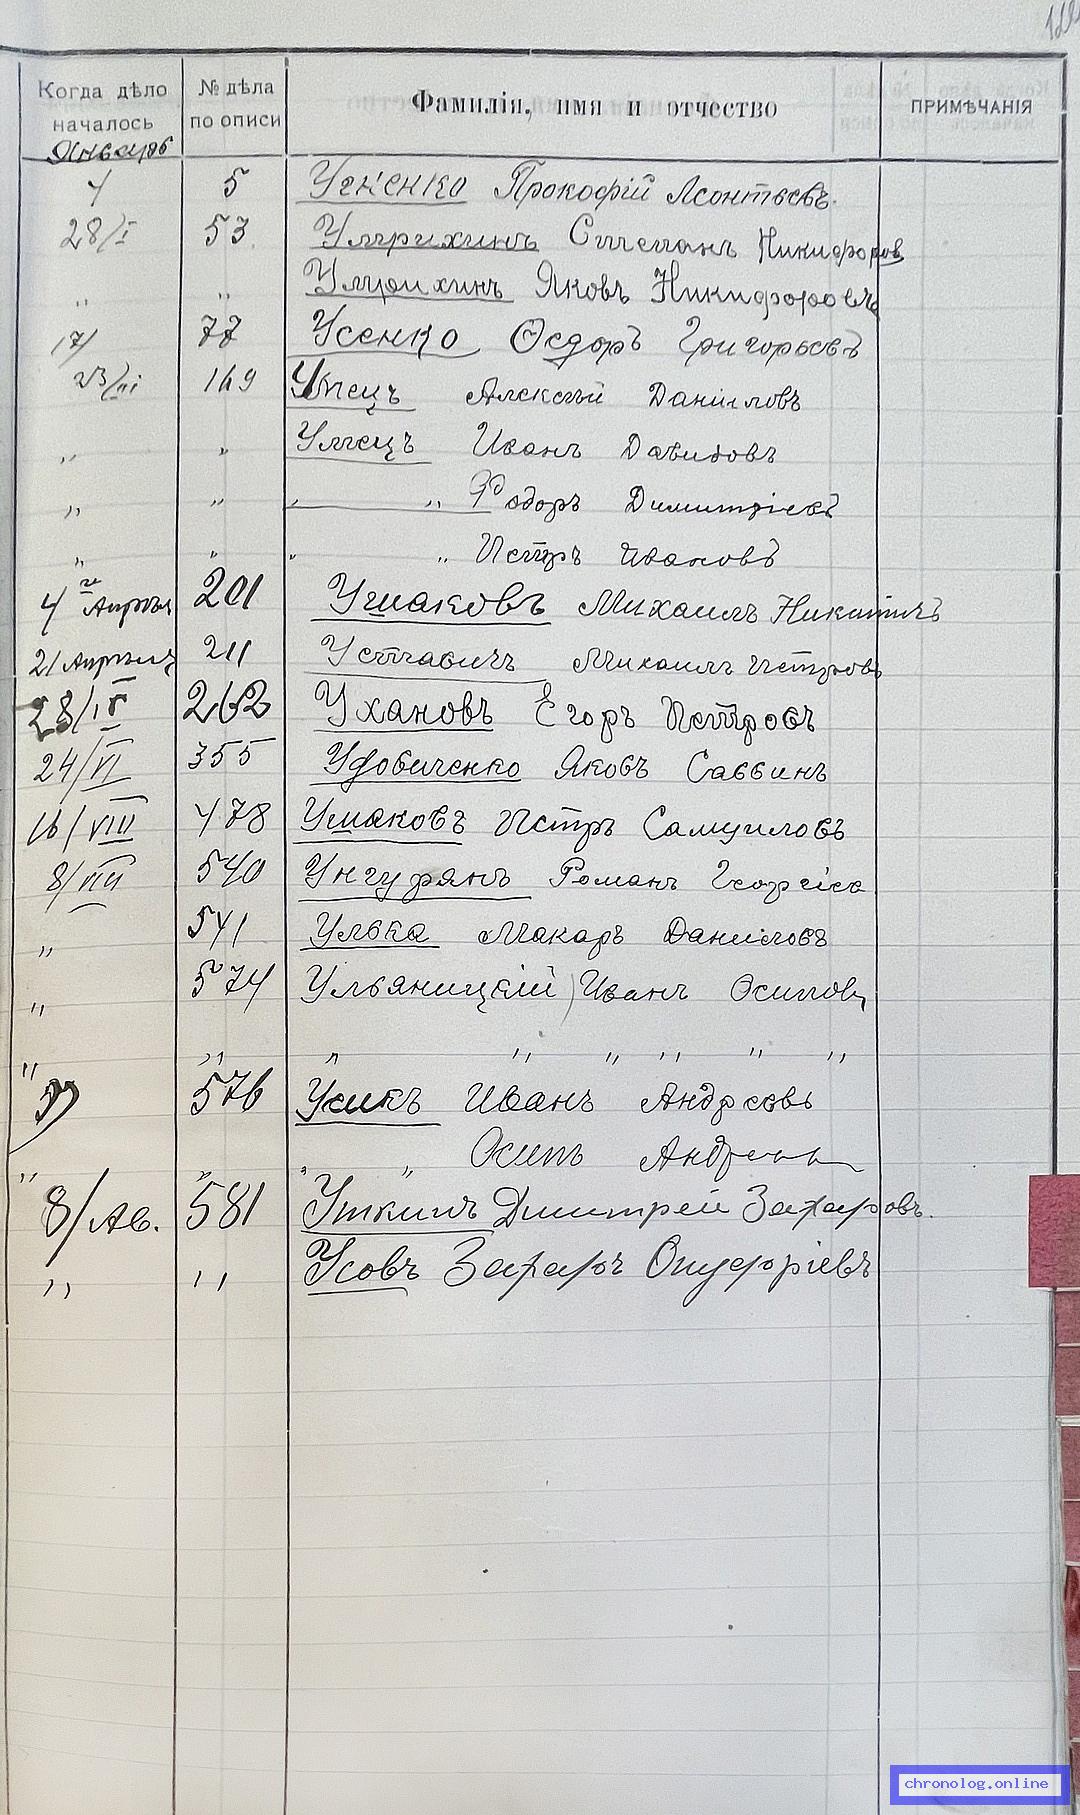 Когда дѣло началось
№ дѣла по описи
Фамилія, имя и отчество
ПРИМѢЧАНІЯ
Январь
4 5 Усненко Прокофій Леонтьевъ.
28/I 53 Умрихинъ Степанъ Никифоров
„ „ Умрихинъ Яковъ Никифоровъ
17/ 77 Усенко Ѳедоръ Григорьевъ
23/III 169 Упецъ Алексѣй Даниловъ
„ „ Упецъ Иванъ Давидовъ
„ „ „ „ Фодоръ Димитріев
„ „ „ „ Петръ Ивановъ
4го Апрѣля 201 Ушаковъ Михаилъ Никитинъ
21 Апрѣля 211 Уставичъ Михаилъ Петровъ
28/IV 262 Ухановъ Егоръ Петровъ
24/VI 355 Удовиченко Яковъ Саввинъ
16/VIII 478 Ушаковъ Петръ Самуиловъ
8/VIII 540 Унгурянъ Романъ Георгіев
„ 541 Улька Макаръ Даниловъ
„ 574 Ульяницкій Иванъ Осиповъ
„ „ „ „ „ „ „ „
576 Усикъ Иванъ Андреевъ
„ „ „ „ Осипъ Андреевъ
8/Ав. 581 Уткинъ Дмитрей Захаровъ.
„ „ Усовъ Захаръ Онуфріевъ
chronolog.online